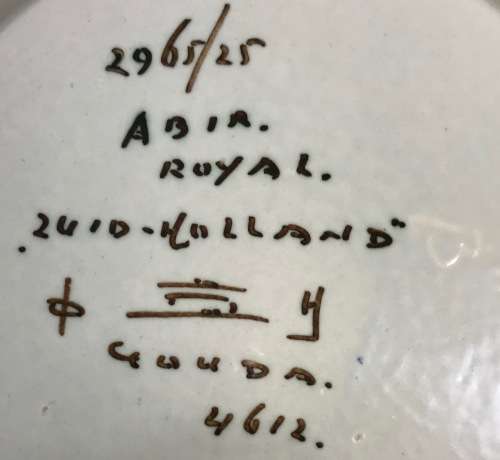 2965/25
ABIR.
ROYAL.
.ZUID-HOLLAND"
GOUDA.
4612.